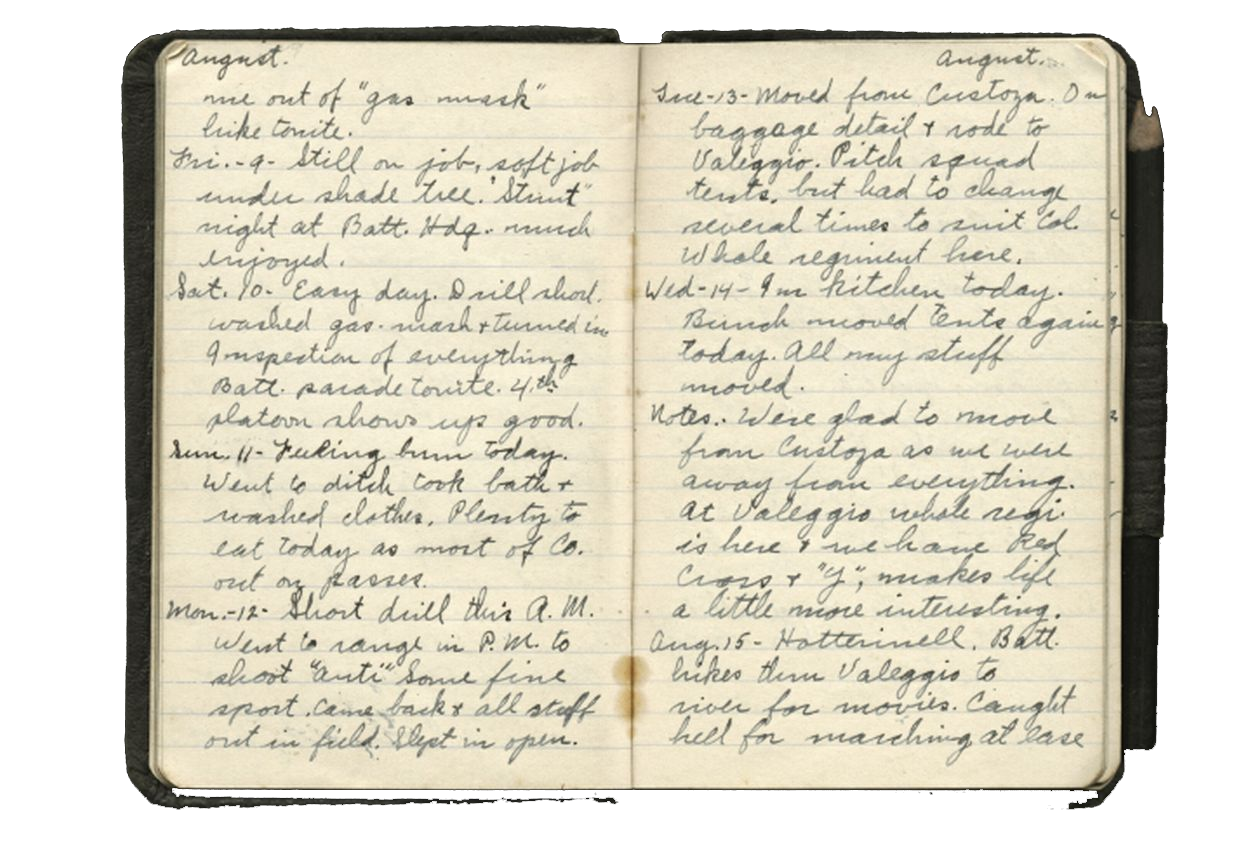 August.
me out of "gas mask"
hike tonite.
Fri.-9- Still on job, soft job
under shade tree. "Stunt"
night at Batt. Hdq. much
enjoyed.
Sat. 10- Easy day. Drill short.
washed gas-mask & turned in
Inspection of everything
Batt. parade tonite. 4th
platoon shows up good.
Sun. 11- Feeling bum today.
Went to ditch took bath &
washed clothes. Plenty to
eat today as most of Co.
out on passes.
Mon.-12- Short drill this A.M.
Went to range in P.M. to
shoot "auti" Some fine
sport. Came back & all stuff
out in field. Slept in open.
August.
Tue-13- Moved from Custoza. On
baggage detail & rode to
Valeggio. Pitch squad
tents, but had to change
several times to suit Col.
Whole regiment here.
Wed-14- Im kitchen today.
Bunch moved tents again
today. All my stuff
moved.
Notes.. Were glad to move
from Custoza as we were
away from everything.
At Valeggio whole regi.
is here & we have Red
Cross & "Y", makes life
a little more interesting.
Aug. 15- Hotterinell. Batt.
hikes thru Valeggio to
river for movies. Caught
hell for marching at ease